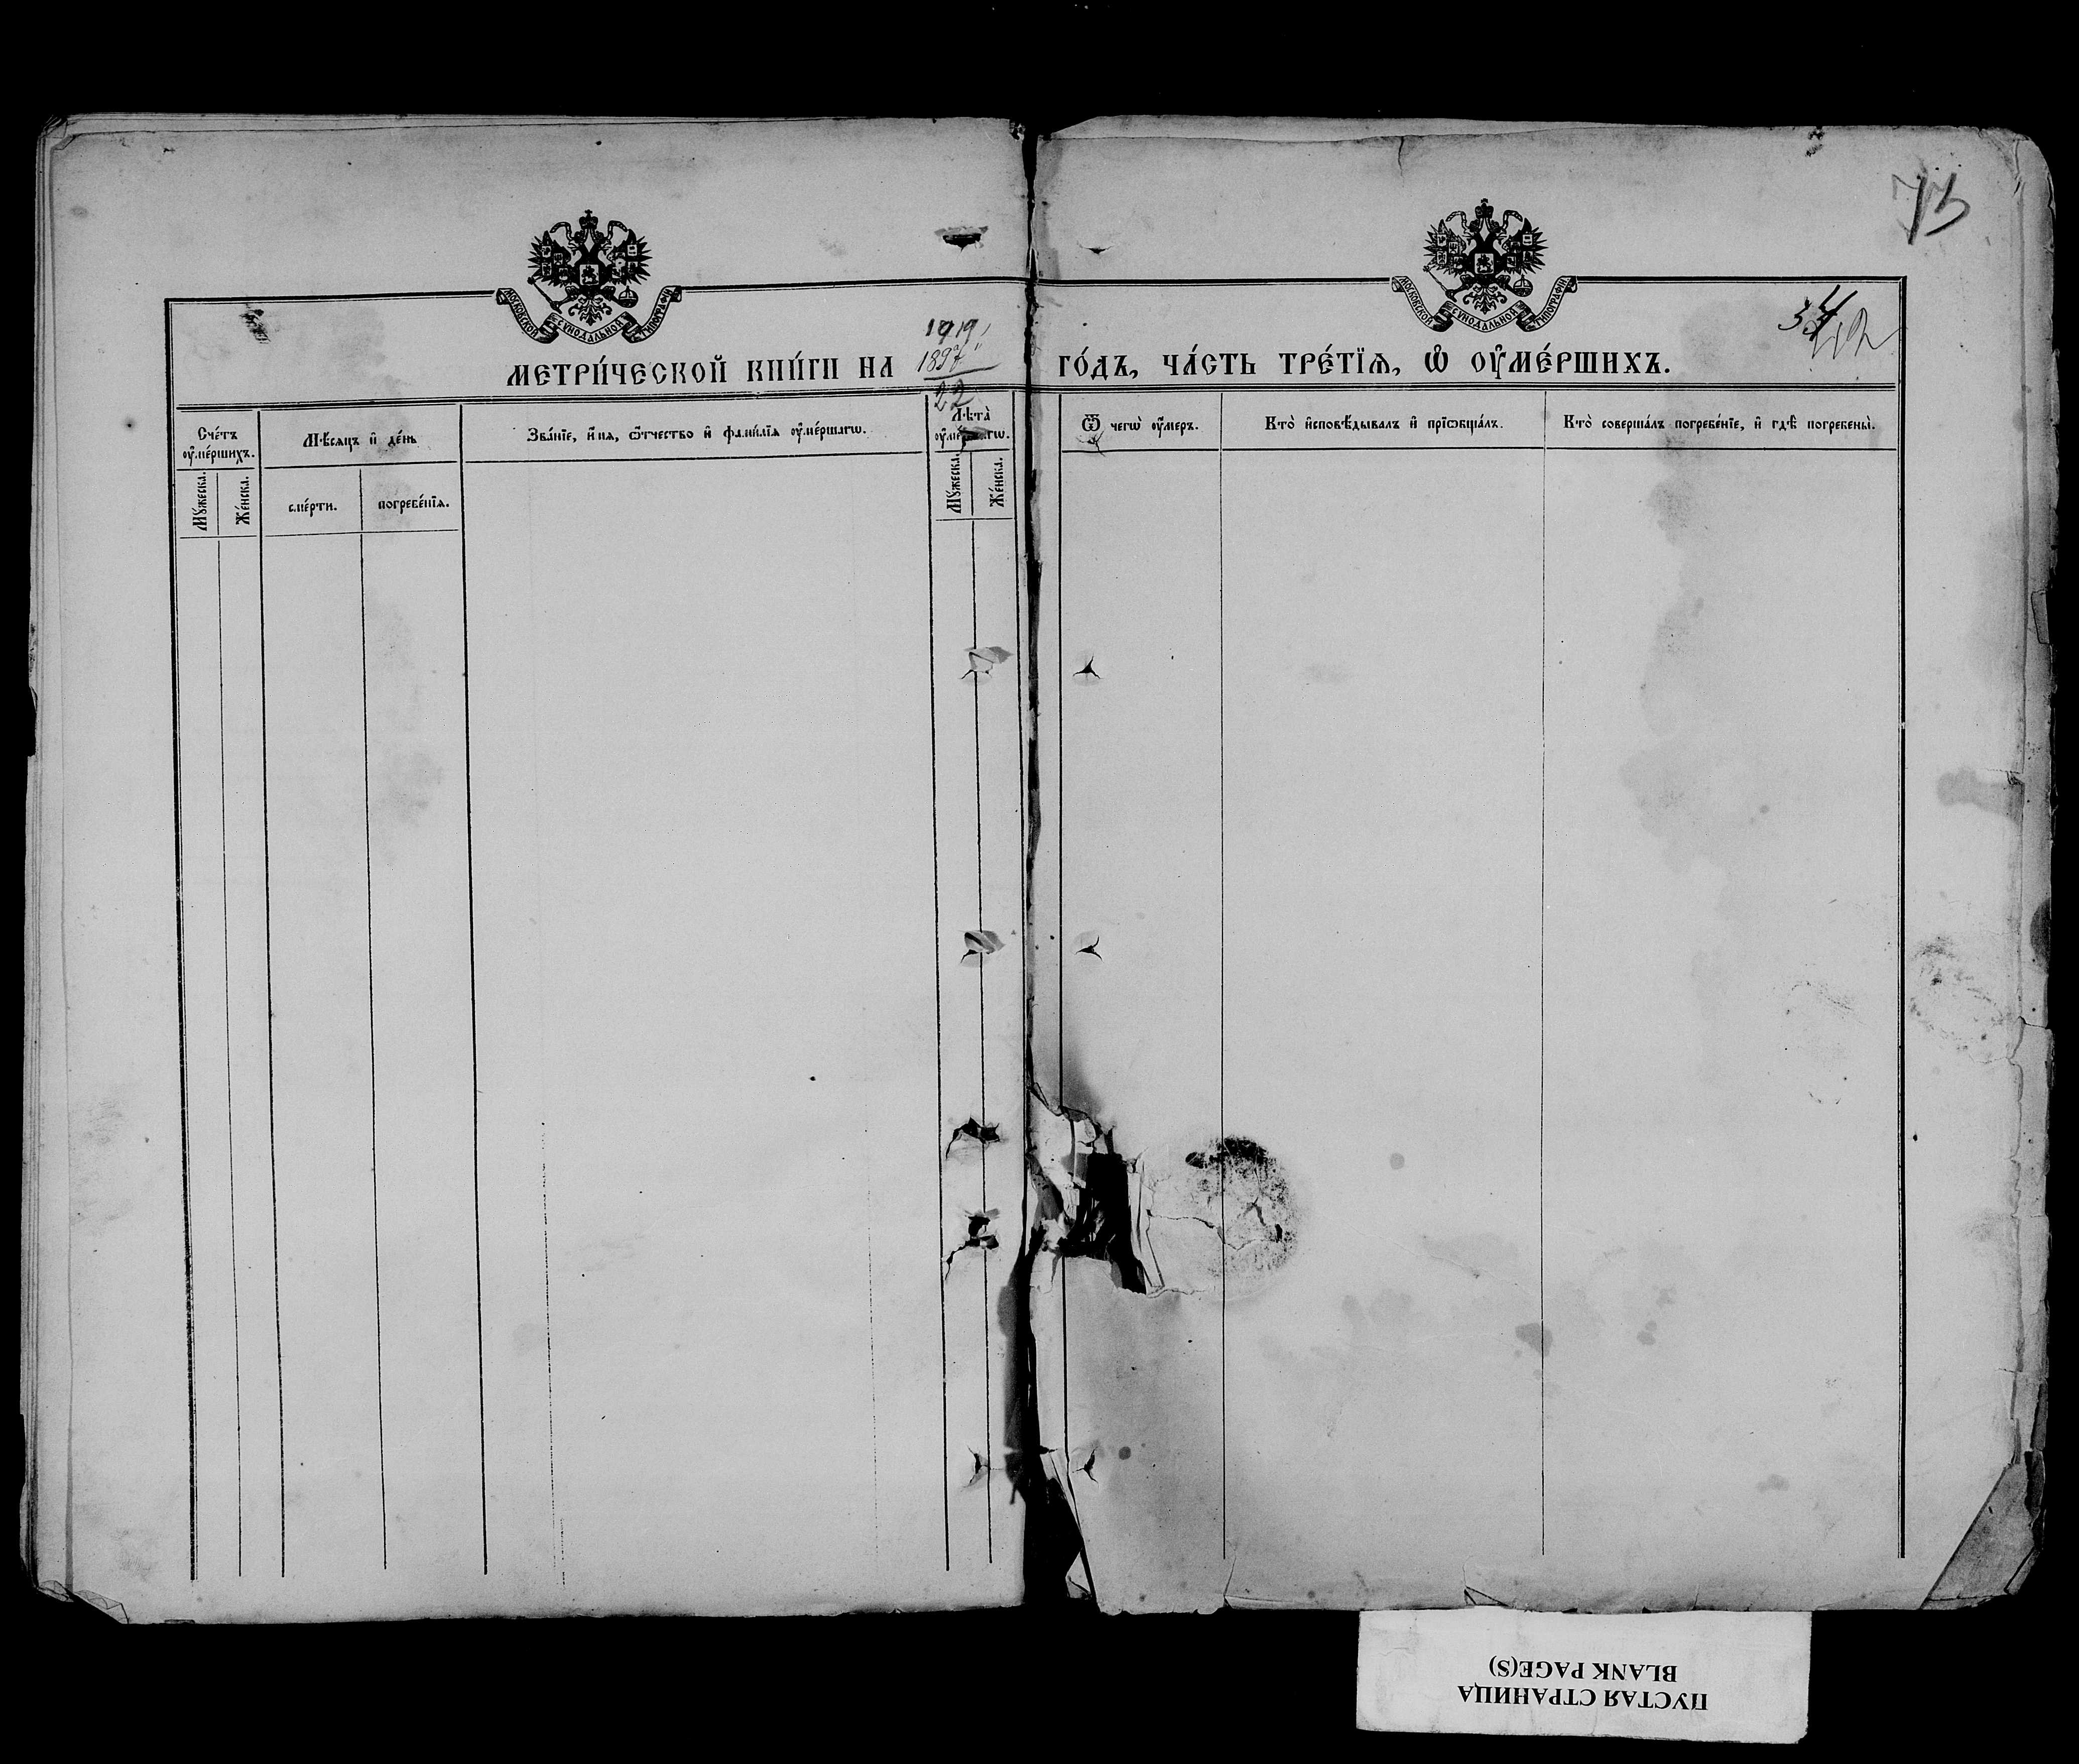 73
МОСКОВСКОЙ СѴНОДАЛЬНОЙ ТИПОГРАФІИ
МОСКОВСКОЙ СѴНОДАЛЬНОЙ ТИПОГРАФІИ
1919
1897
МЕТРИ́ЧЕСКОЙ КНИ́ГИ НА ГО́ДЪ, ЧА́СТЬ ТРЕ́ТЇѦ, Ѽ ОУ҆МЕ́РШИХЪ.
22
Сче́тъ оу҆ме́ршихъ.
Мѣ́сѧцъ и҆ де́нь
Зва́нїе, и҆́мѧ, ѻ҆́тчество и҆ фами́лїѧ оу҆ме́ршагѡ.
Лѣ́та оу҆ме́ршагѡ.
Ѿ чегѡ̀ оу҆́меръ.
Кто̀ и҆сповѣ́дывалъ и҆ прїѡбща́лъ.
Кто̀ соверша́лъ погребе́нїе, и҆ гдѣ̀ погребены̀.
Мꙋ́жеска.
Же́нска.
сме́рти.
погребе́нїѧ.
Мꙋ́жеска.
Же́нска.
ПУСТАЯ СТРАНИЦА
BLANK PAGE(S)